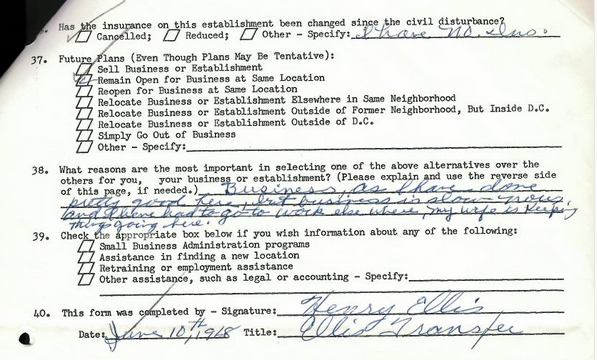 Has the insurance on this establishment been changed since the civil disturbance?
Cancelled; Reduced; Other - Specify: I have No. Ins.
37. Future Plans (Even Though Plans May Be Tentative):
Sell Business or Establishment
Remain Open for Business at Same Location
Reopen for Business at Same Location
Relocate Business or Establishment Elsewhere in Same Neighborhood
Relocate Business or Establishment Outside of Former Neighborhood, But Inside D.C.
Relocate Business or Establishment Outside of D.C.
Simply Go Out of Business
Other - Specify:
38. What reasons are the most important in selecting one of the above alternatives over the
others for you, your business or establishment? (Please explain and use the reverse side
of this page, if needed.) Business, as I have done
pretty good here, but business is slow now,
and I have had to go to work else where, my wife is keeping
things going here.
39. Check the appropriate box below if you wish information about any of the following:
Small Business Administration programs
Assistance in finding a new location
Retraining or employment assistance
Other assistance, such as legal or accounting - Specify:
40. This form was completed by - Signature: Henry Ellis
Date: June 10,th 1968 Title: Ellis Transfer